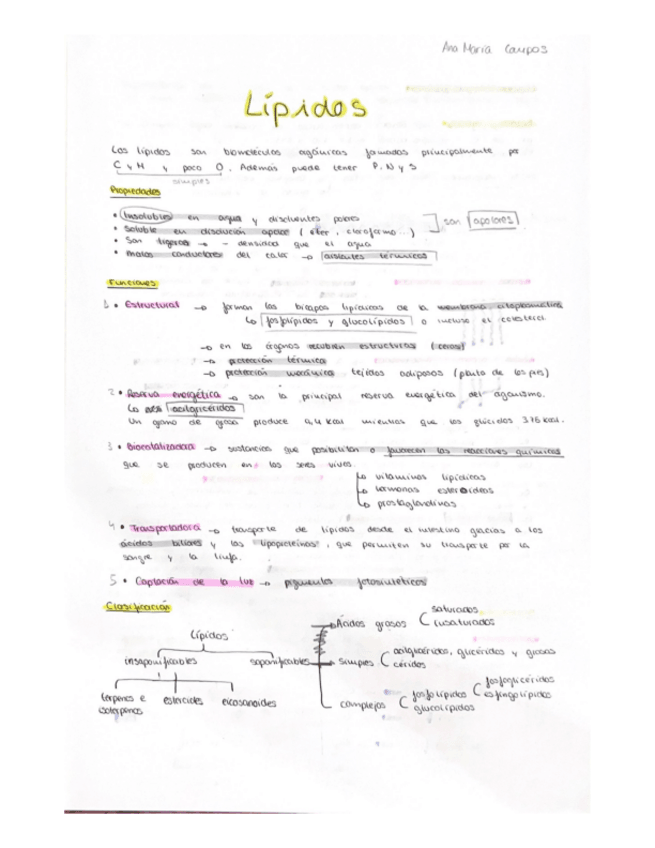 Ana María Campos
Lípidos
Los lípidos son biomoléculas orgánicas formados principalmente por
C y H y poco O. Además puede tener P, N y S
simples
Propiedades
• Insolubles en agua y disolventes polares
• Soluble en disolución apolar (éter, cloroformo...) son apolares
• Son ligeros → - densidad que el agua
• malos conductores del calor → aislantes térmicos
Funciones
1. • Estructural → forman las bicapas lipídicas de la membrana citoplasmática
↳ fosfolípidos y glucolípidos o incluso el colesterol
→ en los órganos recubren estructuras (ceras)
→ protección térmica
→ protección mecánica tejidos adiposos (planta de los pies)
2 • Reserva energética → son la principal reserva energética del organismo.
↳ acilglicéridos
Un gramo de grasa produce 9,4 kcal mientras que los glúcidos 3,76 kcal.
3 • Biocatalizadora → sustancias que posibilitan o favorecen las reacciones químicas
que se producen en los seres vivos.
↳ vitaminas lipídicas
↳ hormonas esteroideas
↳ prostaglandinas
4 • Transportadora → transporte de lípidos desde el intestino gracias a los
ácidos biliares y las lipoproteínas, que permiten su transporte por la
sangre y la linfa.
5 • Captación de la luz → pigmentos fotosintéticos
Clasificación
Lípidos
insaponificables saponificables
terpenos e isoterpenos esteroides eicosanoides
Ácidos grasos saturados insaturados
simples acilglicéridos, glicéridos y grasas céridos
complejos fosfolípidos fosfoglicéridos esfingolípidos
glucolípidos